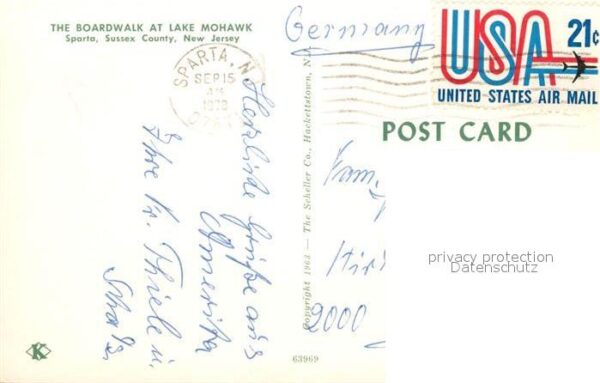 THE BOARDWALK AT LAKE MOHAWK
Sparta, Sussex County, New Jersey
Germany
USA 21c
UNITED STATES AIR MAIL
SPARTA, N.
SEP 15
AM
POST CARD
Herzliche Grüße aus
Amerika
Ihre Fr. Thiele u.
Copyright 1963 — The Scheller Co., Hackettstown, N.
Fam.
2000
privacy protection
Datenschutz
K
63969